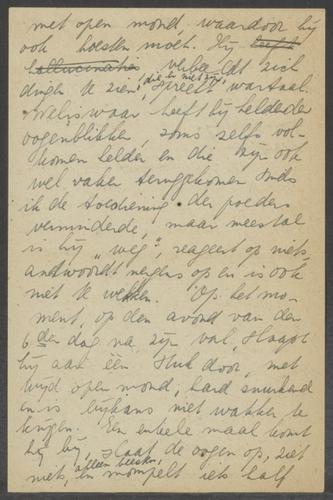 met open mond, waardoor hij
ook hoesten moet. Hij heeft
hallucinaties verbeeldt zich
dingen te zien, die er niet zijn, spreekt wartaal.
Weliswaar heeft hij heldere
oogenblikken, soms zelfs vol-
komen helder en die zijn ook
wel vaker teruggekomen sinds
ik de toediening der poeders
verminderde, maar meestal
is hij "weg", reageert op niets,
antwoordt nergens op en is ook
niet te wekken. Op het mo-
ment, op den avond van den
6den dag na zijn val, slaapt
hij aan één stuk door, met
wijd open mond, hard snurkend
en is bijkans niet wakker te
krijgen. Een enkele maal komt
hij bij, slaat de oogen op, ziet
niets, en mompelt iets half